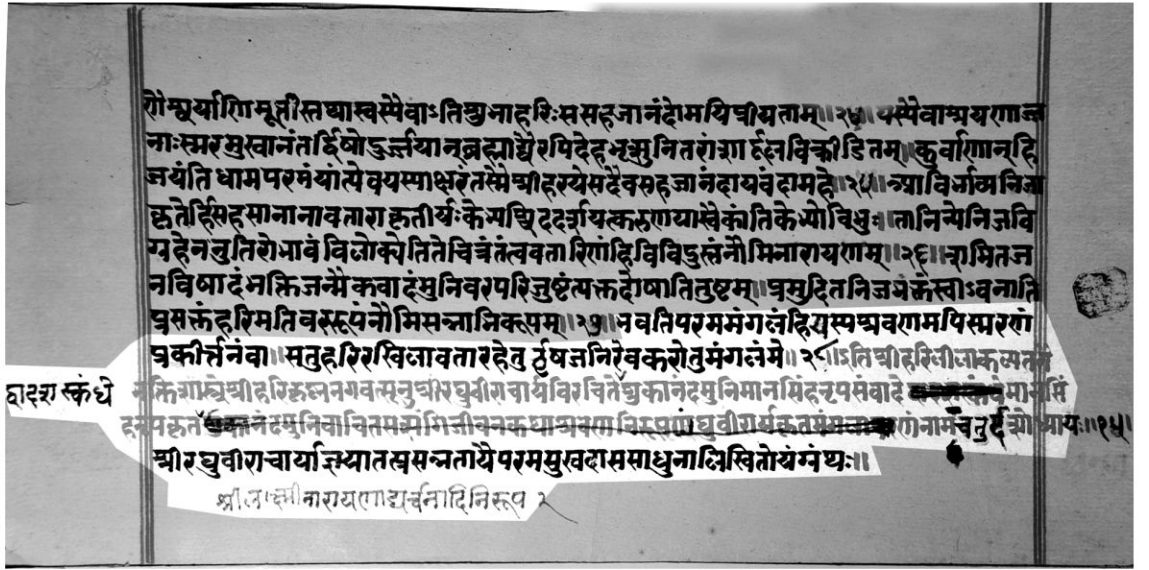 णैश्वर्याणिमूर्तीस्तथास्वस्यैवाऽतिघनाहरिःससहजानंदोमयिप्रीयताम्॥२४॥यस्यैवाश्रयणाज्ज
नाःस्मरमुखानंतर्द्विषोदुर्ज्जयान्ब्रह्माद्यैरपिदेहभृत्सुनितरां विक्रीडितम्॥कुर्वाणान्हि
जयंतिधामपरमंयांत्येवयस्याक्षरंतस्मैश्रीहरयेसदैवसहजानंदायवंदामहे॥२५॥प्राविर्भाव्यनिजा
कृतेर्हिसहसानानावताराकृतीर्यःकेभ्यश्चिददर्शयत्करुणयास्वैकांतिकेभ्योविभुः॥तानिन्येनिजवि
ग्रहेननुतिरोभावंविलोक्येतितेचित्रंतंत्ववतारिणंहिविविदुस्तंनौमिनारायणम्॥२६॥शमितज
नविषादंभक्तिजन्मैकवादंमुनिवरपरिजुष्टंत्यक्तदोषातितुष्टम्॥प्रमुदितनिजभक्तंस्वाऽवनाति
प्रसक्तंहरिमतिवररूपंनौमिसन्नाभिकूपम्॥२७॥भवतिपरममंगलंहियस्यश्रवणमपिस्मरणं
प्रकीर्त्तनंवा॥सतुहरिरखिलावतारहेतुर्वृषजनिरेवकरोतुमंगलंमे॥२८॥इतिश्रीहरिलीलाकल्पतरौ
द्वादशस्कंधे भक्तिशास्त्रेश्रीहरिकृष्णभगवत्सूनुश्रीरघुवीराचार्यविरचितेमुक्तानंदमुनिमानसिंहनृपसंवादे मानसिं
हनृपकृतमुक्तानंदमुनिवाचितसत्संगिजीवनकथाश्रवण रघुवीरार्यकृत नामचतुर्दशोध्यायः॥१४॥
श्रीरघुवीराचार्याज्ञयातत्प्रसन्नतायैपरमसुखदाससाधुनालिखितोयंग्रंथः॥
श्रीलक्ष्मीनारायणाद्यर्चनादिनिरूप २